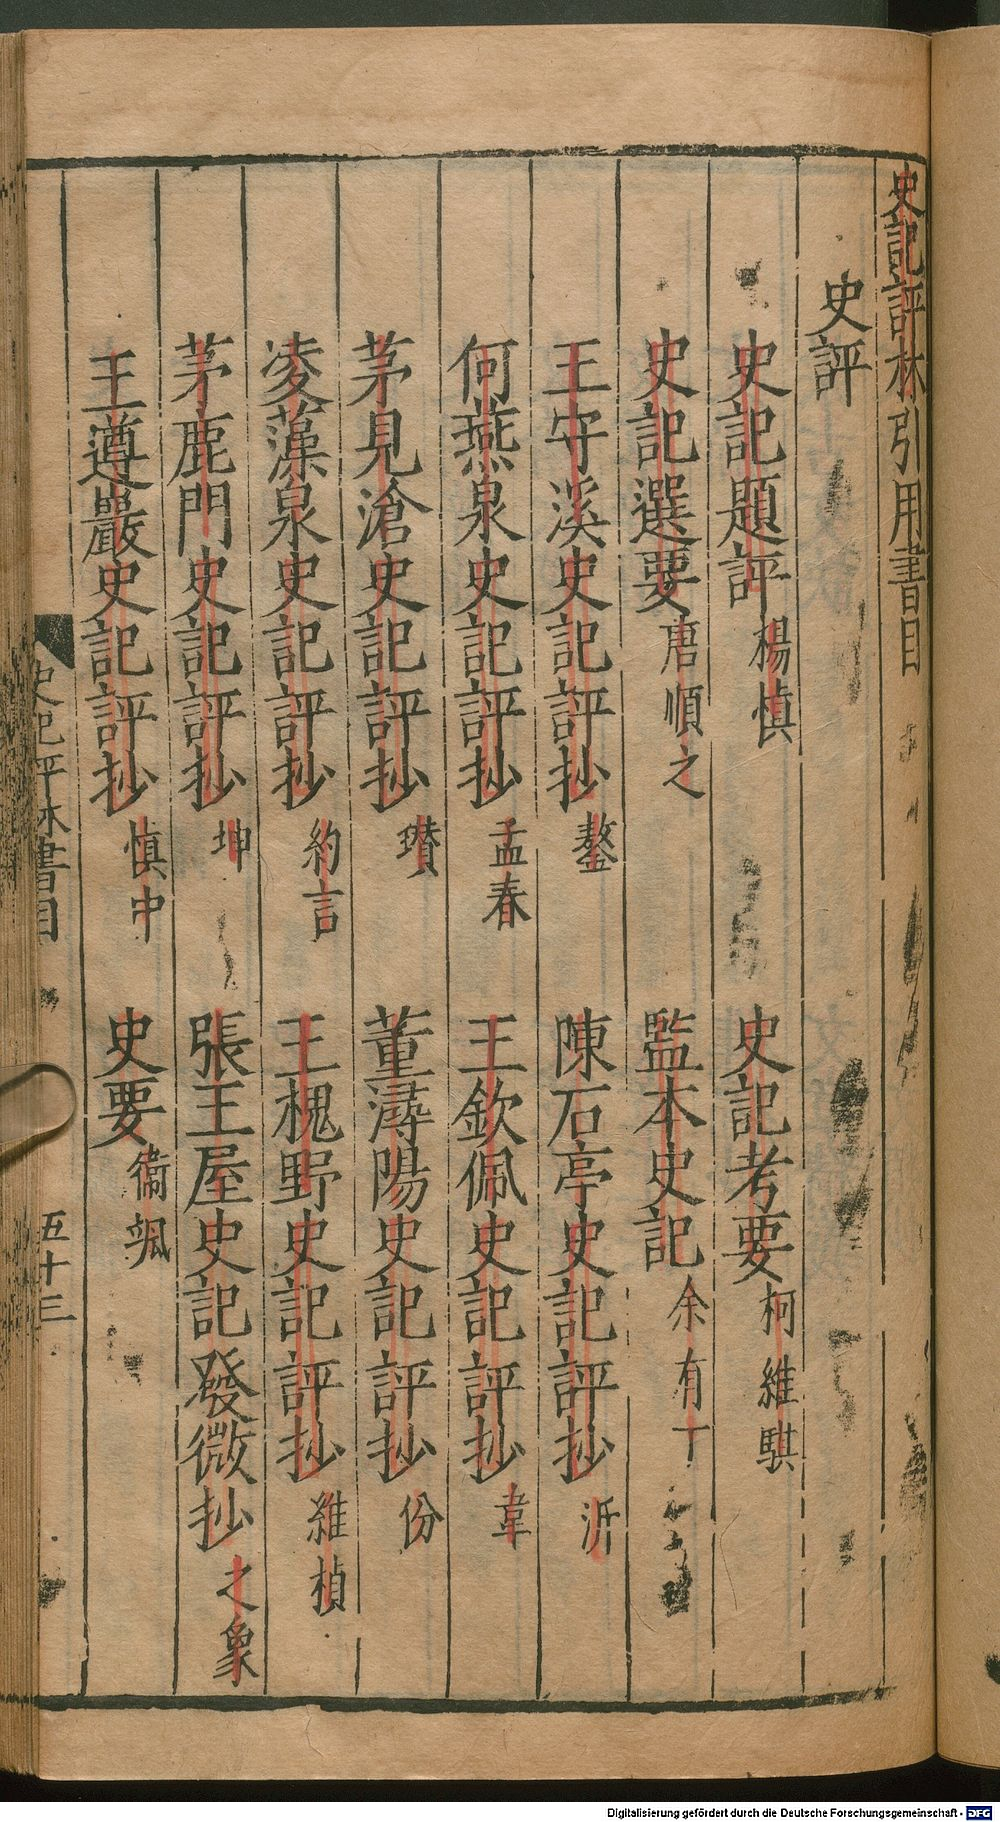 史記評林引用書目
史評
史記題評 楊慎 史記考要 柯維騏
史記選要 唐順之 監本史記 余有丁
王守溪史記評抄 鏊 陳石亭史記評抄 沂
何燕泉史記評抄 孟春 王欽佩史記評抄 韋
茅見滄史記評抄 瓚 董潯陽史記評抄 份
凌藻泉史記評抄 約言 王槐野史記評抄 維楨
茅鹿門史記評抄 坤 張王屋史記發微抄 之象
王遵巖史記評抄 慎中 史要 衞颯
史記評林書目 五十三
Digitalisierung gefördert durch die Deutsche Forschungsgemeinschaft - DFG